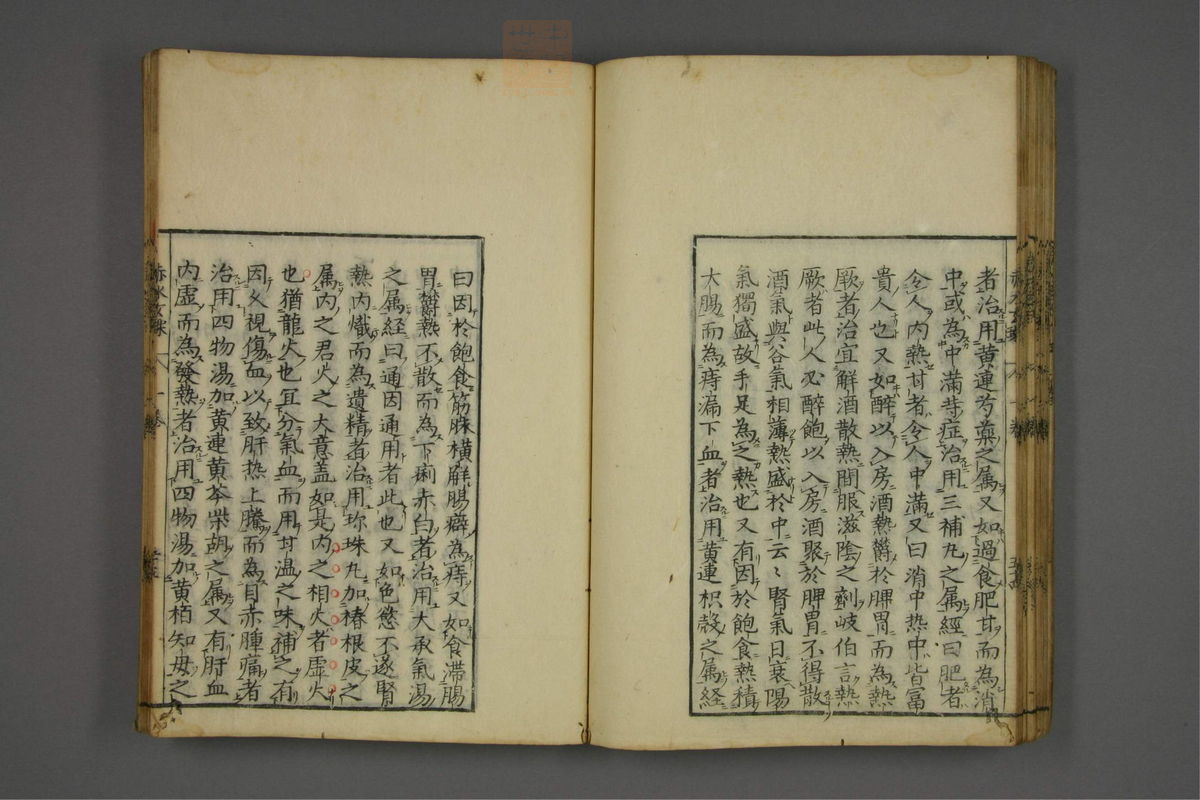 者治用黄連芍薬之属又如過食肥甘而為消
中或為中滿等症治用三補丸之属經曰肥者
令人内熱甘者令人中滿又曰消中热中皆冨
貴人也又如醉以入房酒熱欝於脾胃而為熱
厥者治宜解酒散熱間服滋陰之劑岐伯言熱
厥者此人必醉飽以入房酒聚於脾胃不得散
酒氣與谷氣相薄熱盛於中云々腎氣日衰陽
氣獨盛故手足為之熱也又有因於飽食熱積
大腸而為痔漏下血者治用黄連枳殻之属経
曰因於飽食筋脉横解腸癖為痔又如食滞腸
胃欝熱不散而為下痢赤白者治用大承氣湯
之属経曰通因通用者此也又如色慾不遂腎
熱内熾而為遺精者治用珎珠丸加椿根皮之
属内之君火之大意盖如是内之相火者虚火
也猶龍火也宜分氣血而用甘温之味補之有
因久視傷血以致肝热上騰而為目赤腫痛者
治用四物湯加黄連黄芩柴胡之属又有肝血
内虚而為發熱者治用四物湯加黄栢知母之
赤水玄珠 一卷